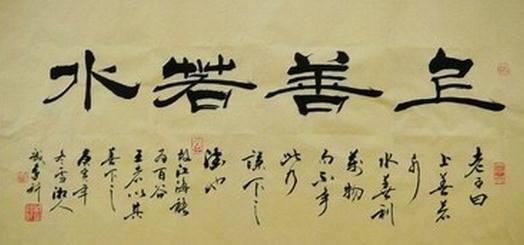 上善若水
老子曰
上善若
水
水善利
萬物
而不争
此乃
謙下之
德也
故江海能
為百谷
王者以其
善下之
庚寅年